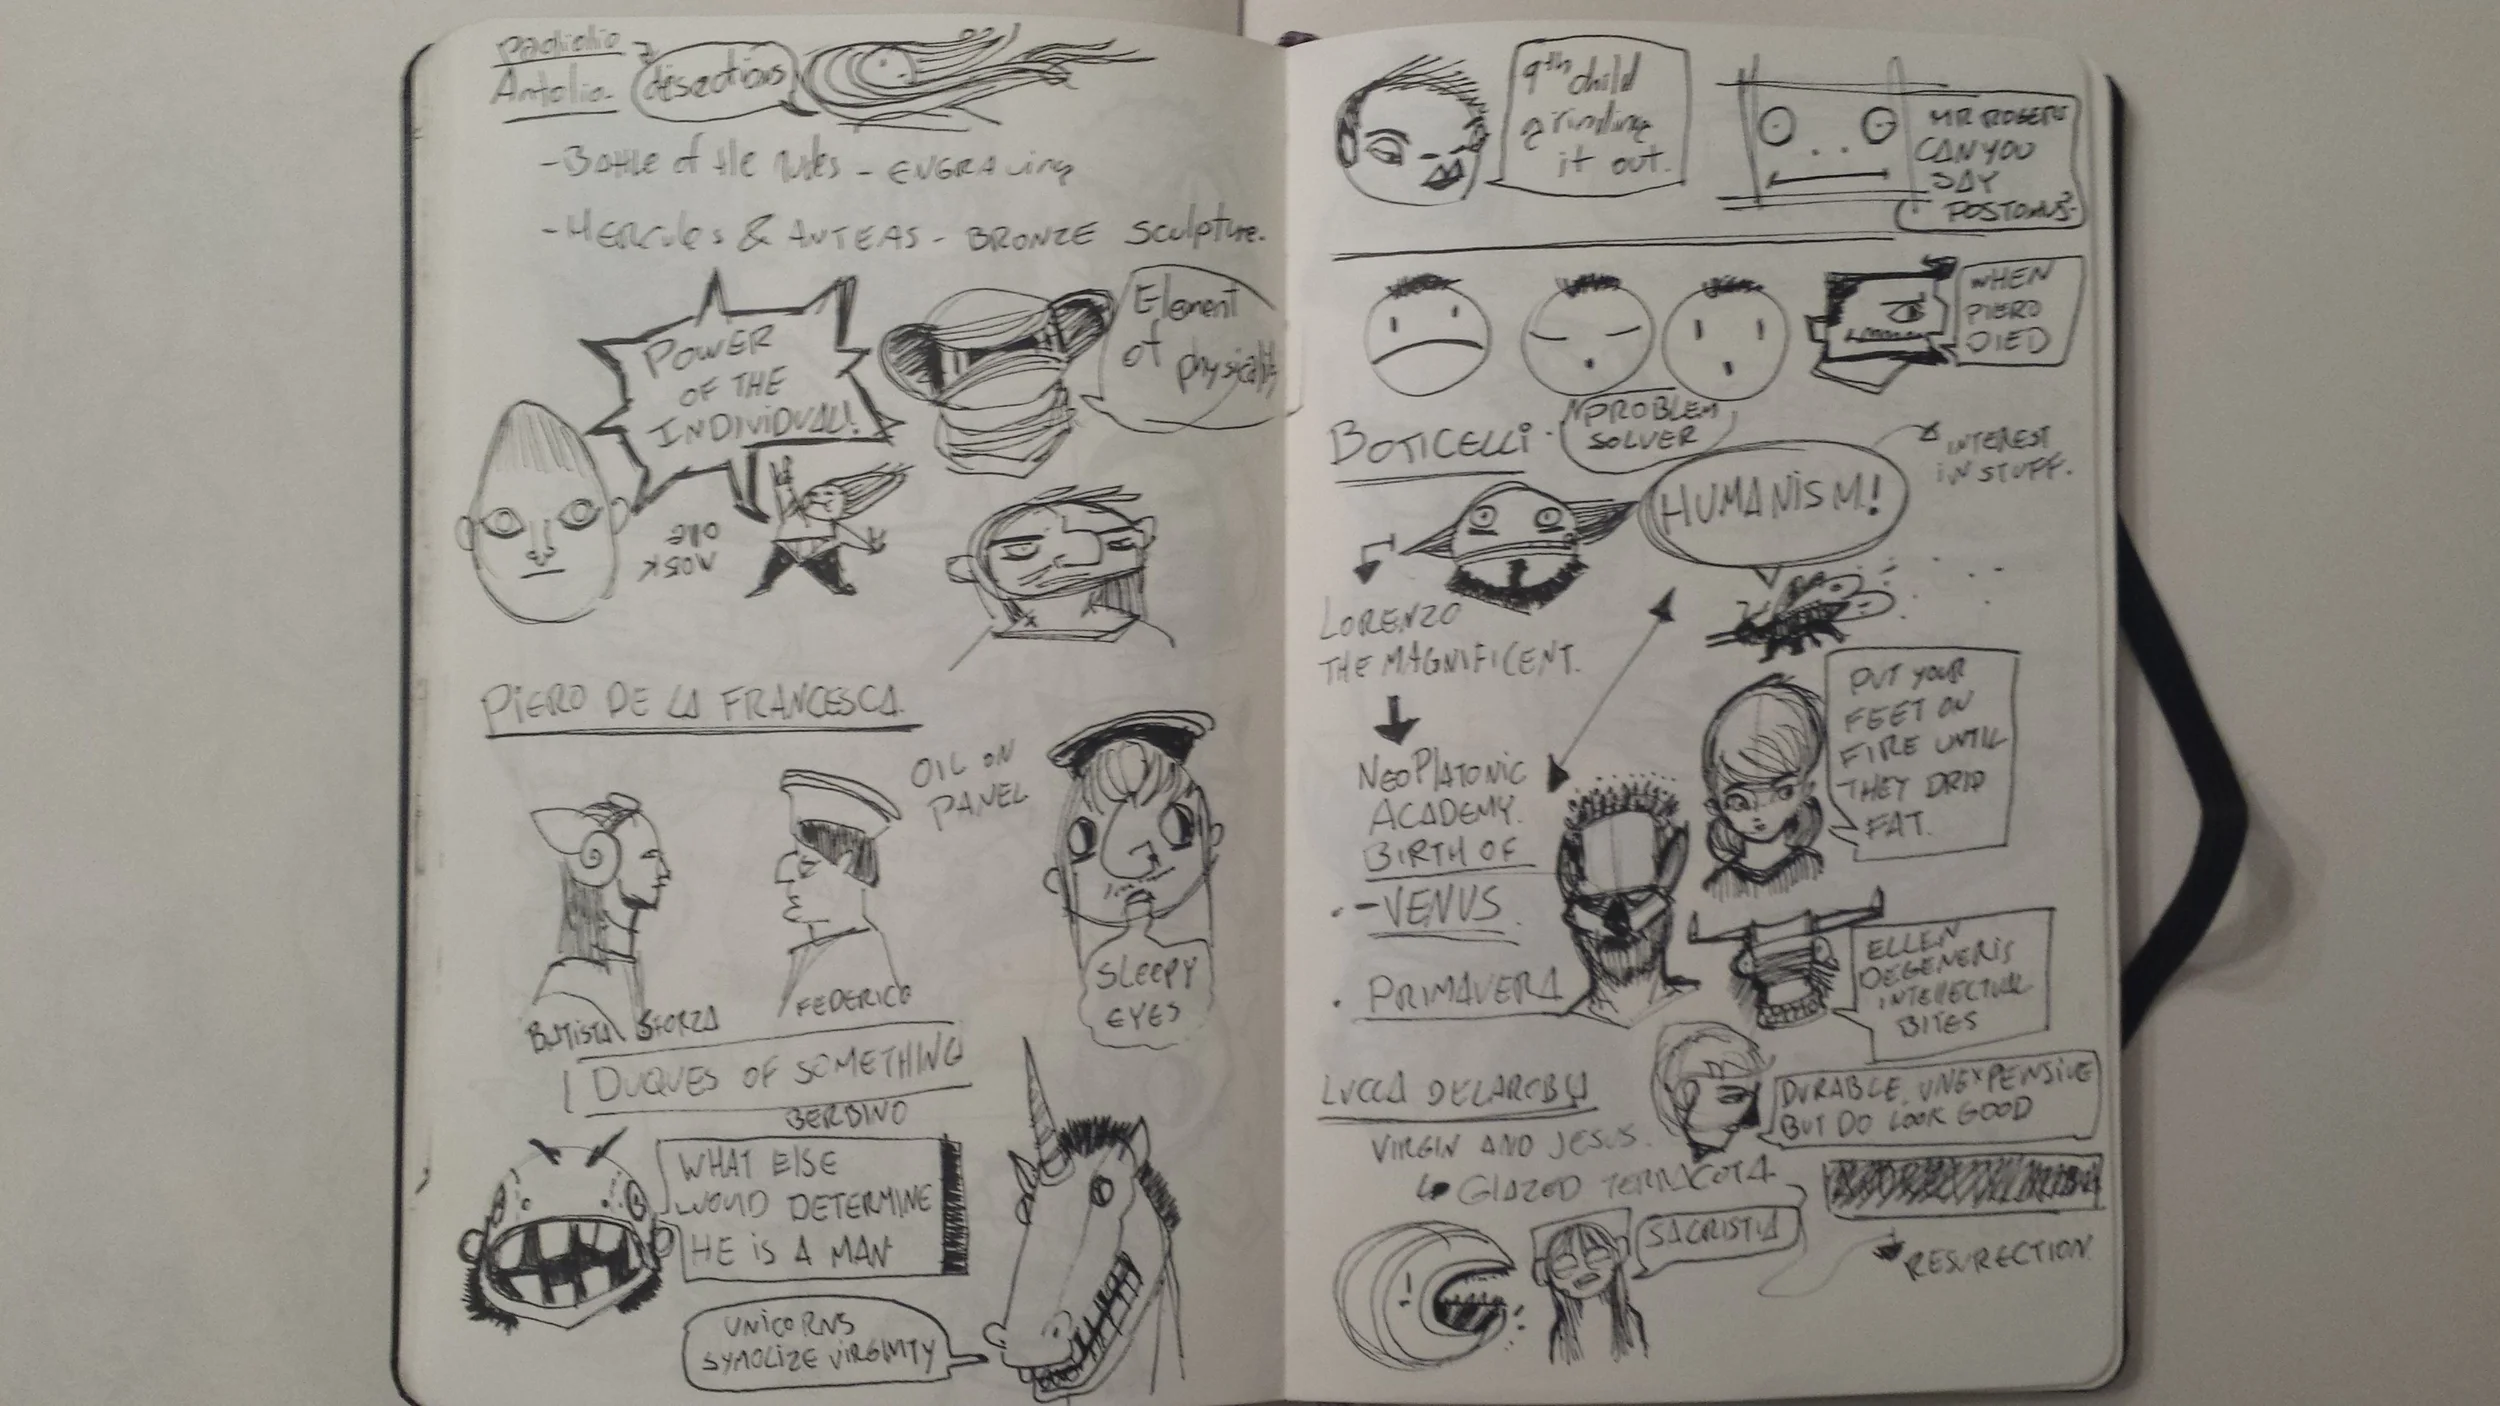 Antolio.
disections
-Battle of the Nudes - ENGRAVING
-HERCULES & ANTEAS - BRONZE Sculpture.
POWER
OF THE
INDIVIDUAL!
Element
of
physicality
PIERO DE LA FRANCESCA.
OIL ON
PANEL
SLEEPY
EYES
BATISTA SFORZA
FEDERICO
DUQUES OF SOMETHING
BERBINO
WHAT ELSE
WOULD DETERMINE
HE IS A MAN
UNICORNS
SYMOLIZE VIRGINITY
9th child
grinding
it out.
MR ROGERS
CAN YOU
SAY
WHEN
PIERO
DIED
BOTICELLI.
PROBLEM
SOLVER
HUMANISM!
INTEREST
IN STUFF.
LORENZO
THE MAGNIFICENT.
NEOPLATONIC
ACADEMY.
BIRTH OF
-VENUS.
. PRIMAVERA
PUT YOUR
FEET ON
FIRE UNTIL
THEY DRIP
FAT.
ELLEN
DEGENERIS
INTELECTUAL
BITES
LUCCA DELAROBIA
DURABLE, UNEXPENSIVE
BUT DO LOOK GOOD
VIRGIN AND JESUS.
GLAZED TERRACOTA.
SACRISTIA
RESURECTION.